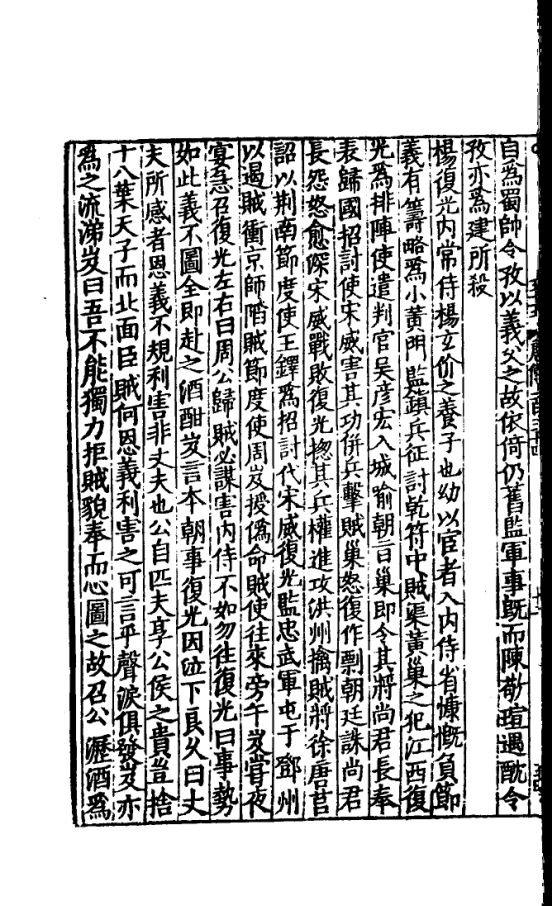 自為蜀帥令孜以義父之故依倚仍舊監軍事既而陳敬瑄遇酖令
孜亦為建所殺
楊復光內常侍楊玄价之養子也幼以宦者入內侍省慷慨負節
義有籌略為小黃門監鎮兵征討乾符中賊渠黃巢之犯江西復
光為排陣使遣判官吳彥宏入城喻朝旨巢即令其將尚君長奉
表歸國招討使宋威害其功併兵擊賊巢怒復作剽朝廷誅尚君
長怨怒愈深宋威戰敗復光揔其兵權進攻洪州擒賊將徐唐莒
詔以荆南節度使王鐸為招討代宋威復光監忠武軍屯于鄧州
以遏賊衝京師陷賊節度使周岌授偽命賊使往來旁午岌嘗夜
宴急召復光左右曰周公歸賊必謀害內侍不如勿往復光曰事勢
如此義不圖全即赴之酒酣岌言本朝事復光因泣下良久曰丈
夫所感者恩義不規利害非丈夫也公自匹夫享公侯之貴豈捨
十八葉天子而北面臣賊何恩義利害之可言乎聲淚俱發岌亦
為之流涕岌曰吾不能獨力拒賊貌奉而心圖之故召公瀝酒為